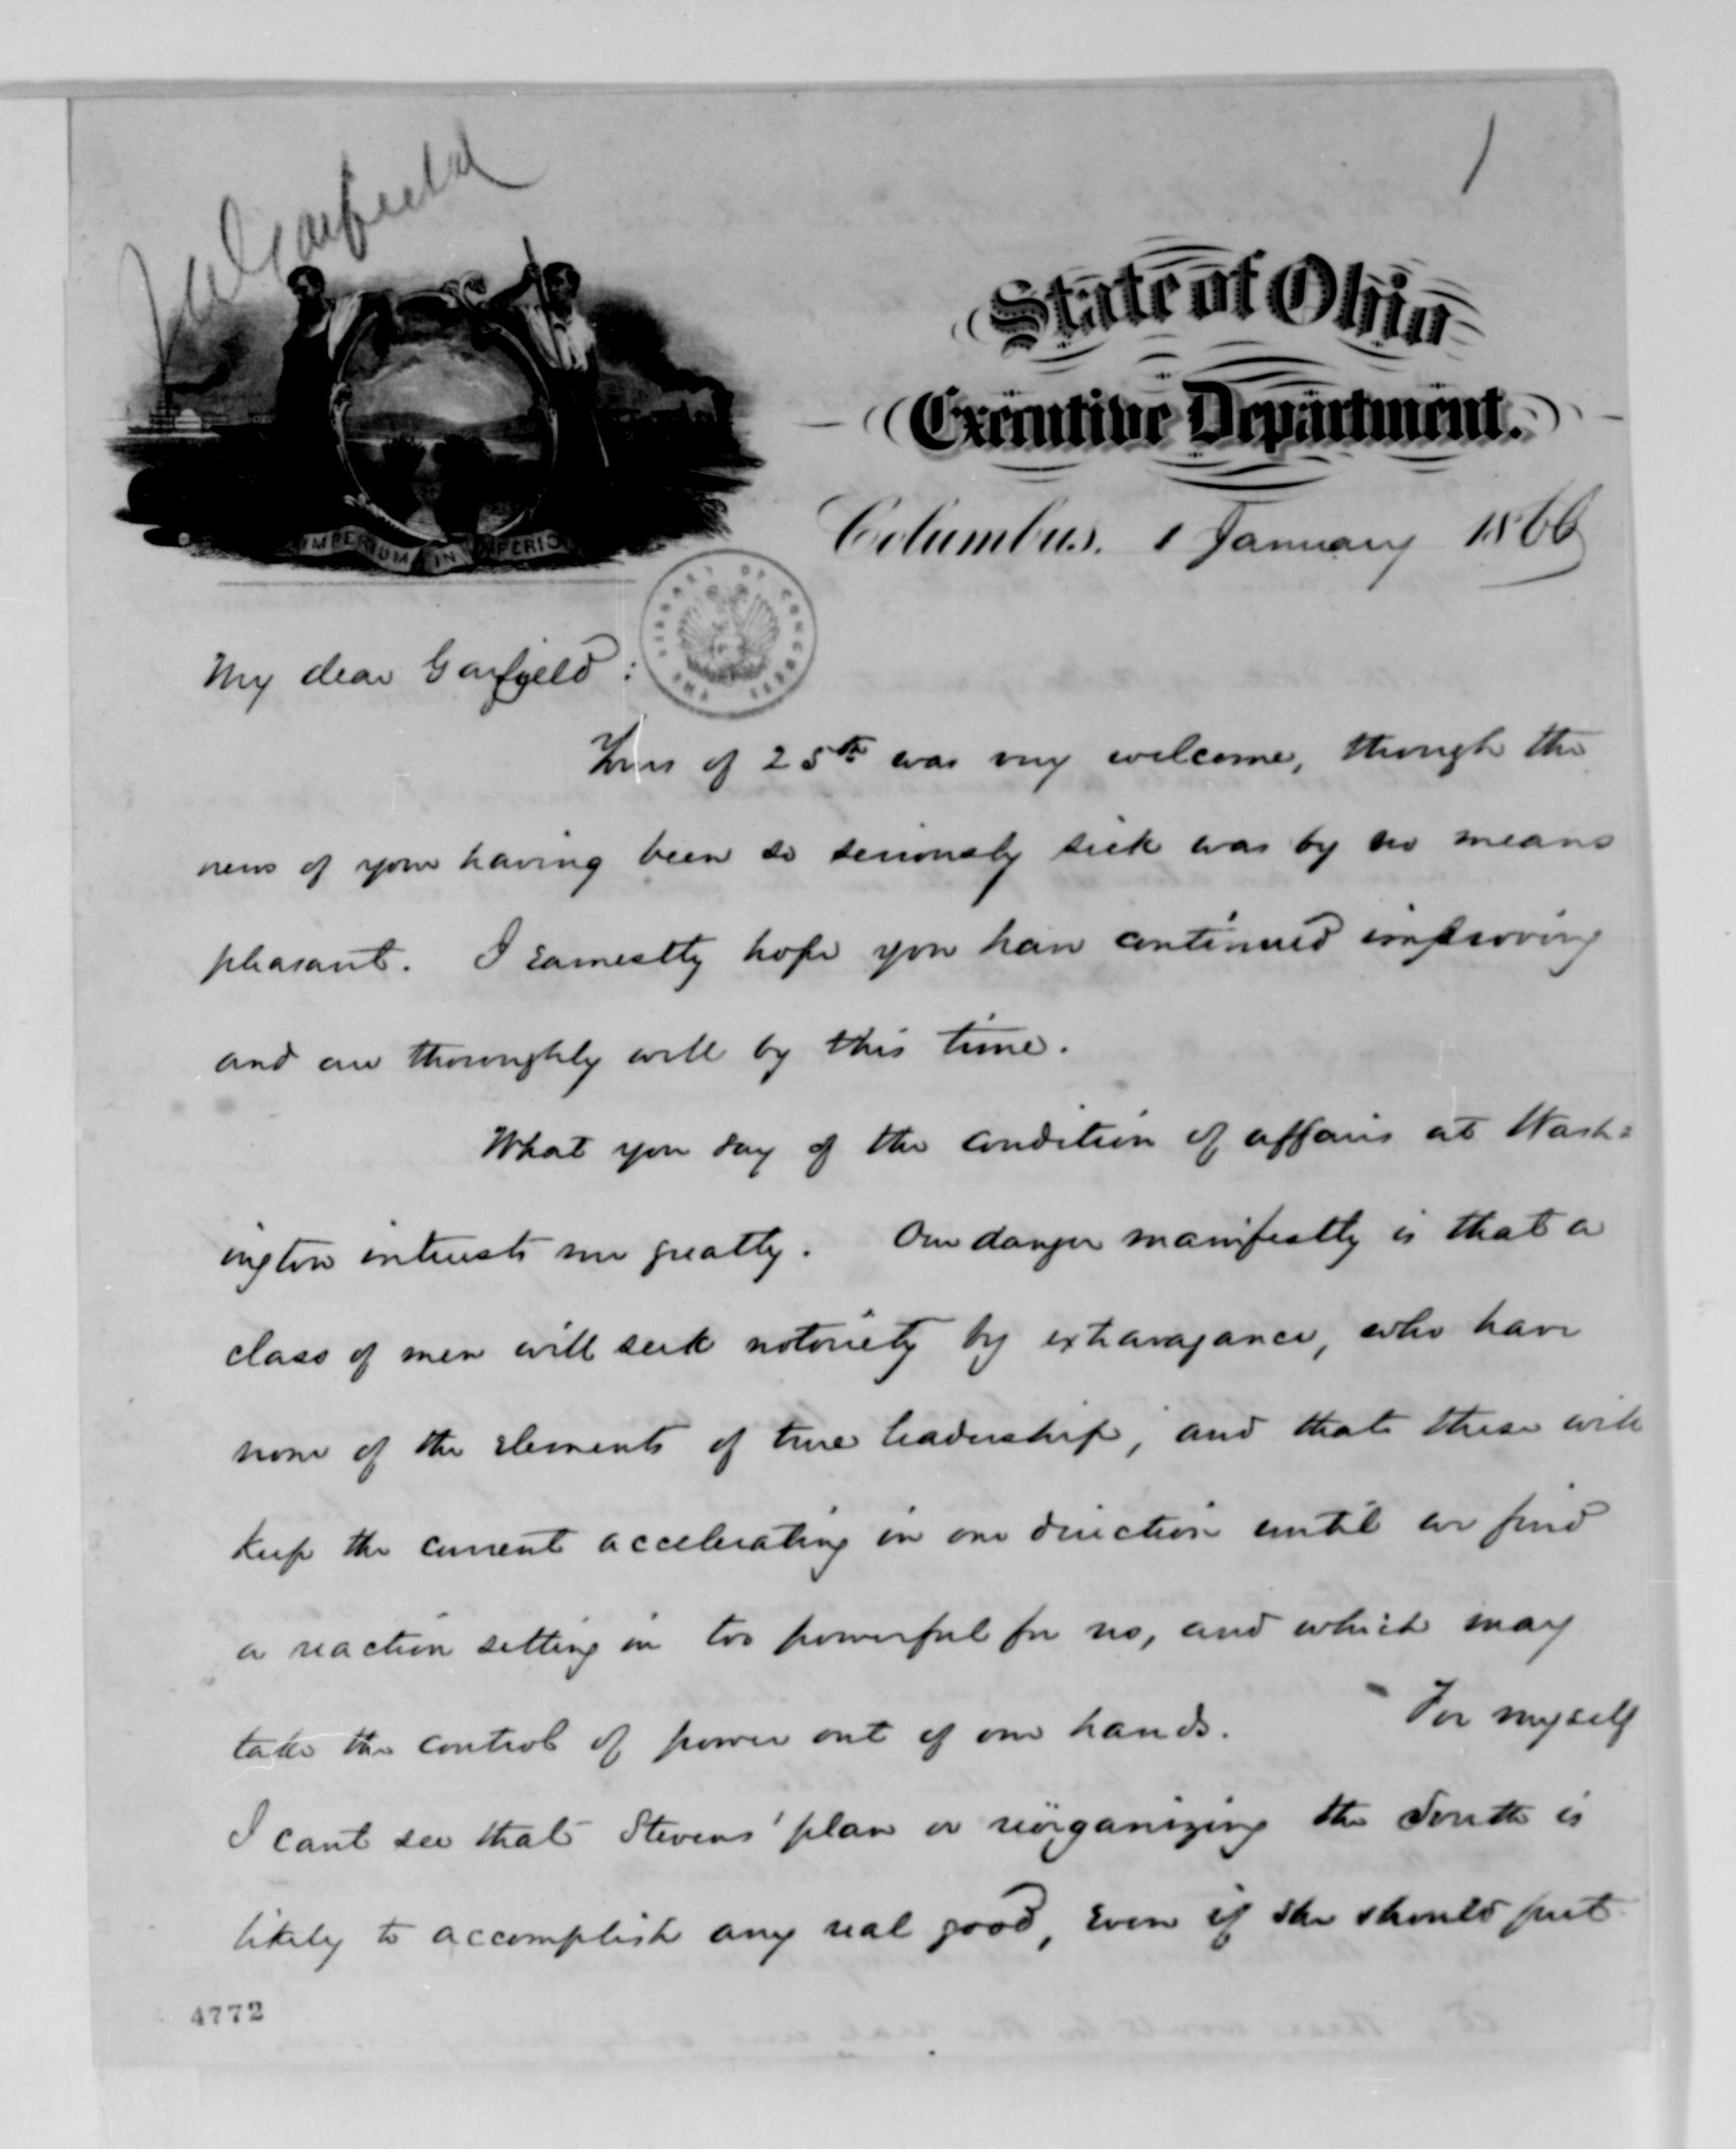 J A Garfield
1
State of Ohio
Executive Department.
IMPERIUM IN IMPERIO
Columbus, 1 January 1866
THE LIBRARY OF CONGRESS
My dear Garfield:
Yours of 25th was very welcome, though the
news of your having been so seriously sick was by no means
pleasant. I earnestly hope you have continued improving
and are thoroughly well by this time.
What you say of the condition of affairs at Wash=
ington interests me greatly. Our danger manifestly is that a
class of men will seek notoriety by extravagance, who have
none of the elements of true leadership, and that these will
keep the current accelerating in one direction until we find
a reaction setting in too powerful for us, and which may
take the control of power out of our hands. For myself
I cant see that Stevens' plan or reörganizing the South is
likely to accomplish any real good, even if she should put
4772